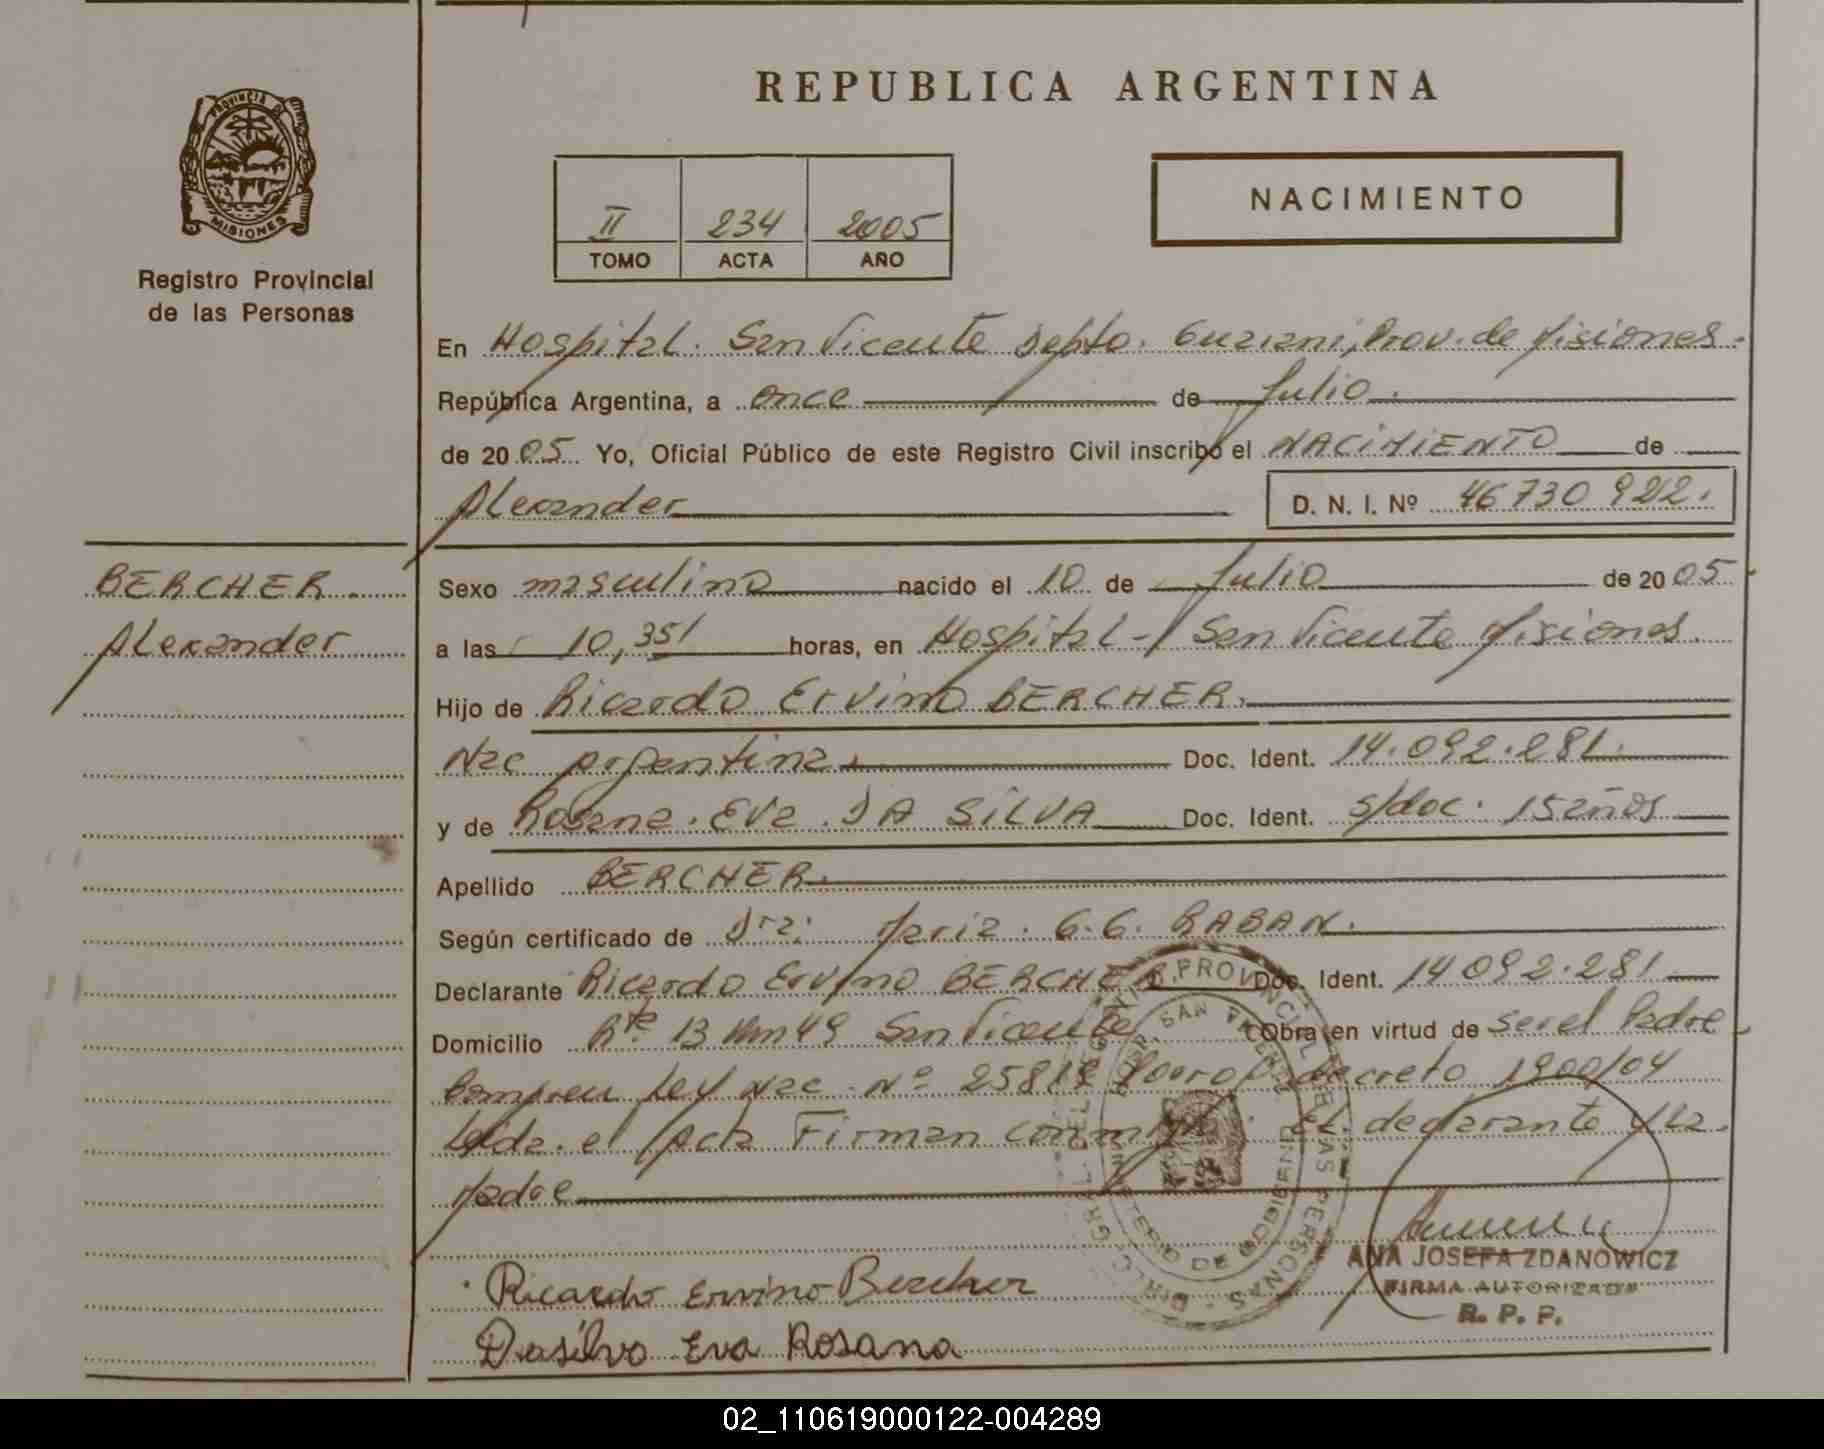 REPUBLICA ARGENTINA
PROVINCIA DE
MISIONES
Registro Provincial
de las Personas
II 234 2005
TOMO ACTA AÑO
NACIMIENTO
En Hospital. San Vicente Depto. Guarani, Prov. de Misiones.
República Argentina, a once de Julio.
de 2005 Yo, Oficial Público de este Registro Civil inscribo el NACIMIENTO de
Alexander D. N. I. Nº 46730922.
BERCHER.
Alexander
Sexo masculino nacido el 10 de Julio de 2005
a las 10,35' horas, en Hospital - San Vicente Misiones.
Hijo de Ricardo Ervino BERCHER.
Nac argentina Doc. Ident. 14.092.281.
y de Rosana. Eva. DA SILVA Doc. Ident. s/doc. 15 años
Apellido BERCHER.
Según certificado de Dra: Maria. G.G. RABAN.
Declarante Ricardo Ervino BERCHER Doc. Ident. 14092.281
Domicilio Rta. 13 Km 49 San Vicente Obra en virtud de ser el Padre
Ley Nac. Nº decreto 1900/04
Leida. el Acta Firman conmigo. El declarante y la
Madre
Ricardo Ervino Bercher
Dasilva Eva Rosana
ANA JOSEFA ZDANOWICZ
FIRMA AUTORIZADA
R. P. P.
DIRECC. GRAL. DEL REGISTRO PROVINCIAL DE LAS PERSONAS
SAN VICENTE
MINISTERIO DE GOBIERNO
02_110619000122-004289